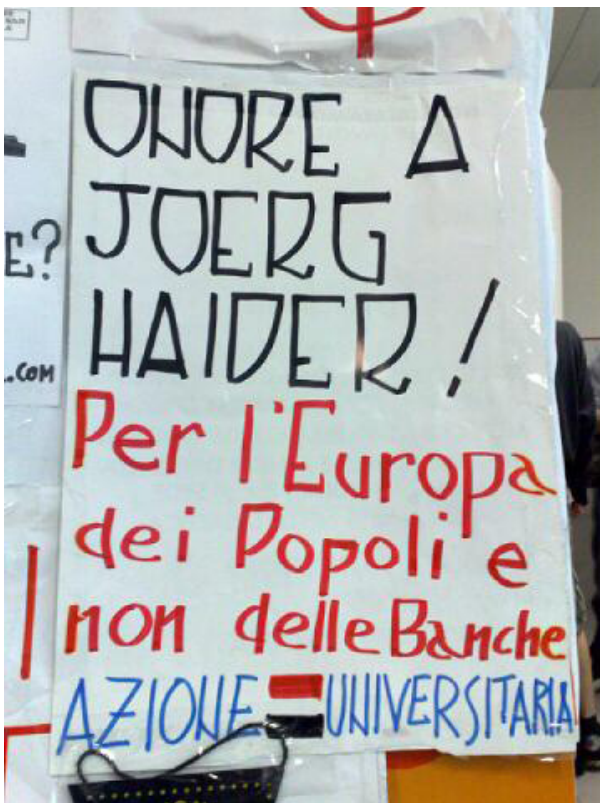 ONORE A
JOERG
HAIDER!
Per l'Europa
dei Popoli e
non delle Banche
AZIONE UNIVERSITARIA
E?
.COM